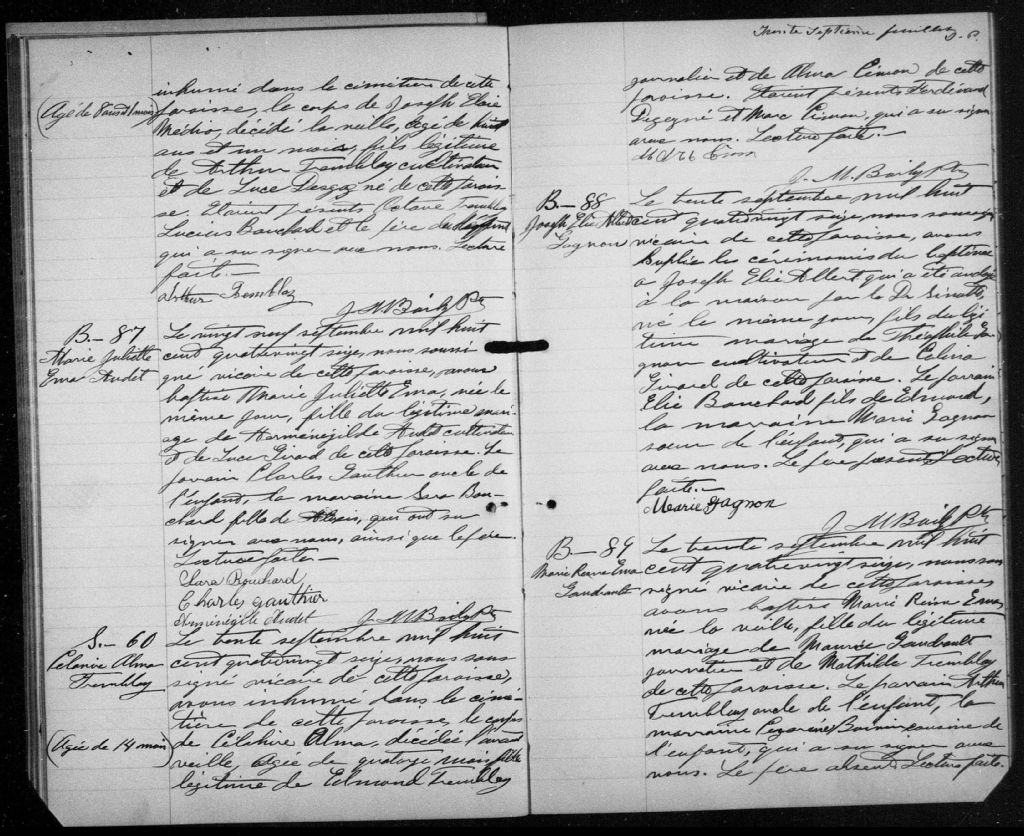 inhumé dans le cimetière de cette
(Agé de 8 ans et 1 mois)
paroisse, le corps de Joseph Elzie
décédé la veille, âgé de huit
ans et un mois, fils légitime
de Arthur Tremblay cultivateur
et de Luce Desgagné de cette parois-
se. Etaient présents Octave Tremblay
Lucien Bouchard et le père du défunt
qui a su signer avec nous. Lecture
faite.—
Arthur Tremblay
J. M. Boily Ptre
B.— 87
Marie Juliette
Ema Audet
Le vingt neuf septembre mil huit
cent quatrevingt seize, nous soussi
gné vicaire de cette paroisse, avons
baptisé Marie Juliette Ema, née le
même jour, fille du légitime mari-
age de Herménégilde Audet cultivateur
et de Luce Girard de cette paroisse. Le
parrain Charles Gauthier oncle de
l'enfant, la marraine Sara Bou-
chard fille de Alexis, qui ont su
signer avec nous, ainsi que le père.
Lecture faite.—
Sara Bouchard
Charles Gauthier
Herménégile Audet
J. M. Boily Ptre
S.— 60
Alma
Tremblay
(Agée de 14 mois)
Le trente septembre mil huit
cent quatrevingt seize, nous sous
signé vicaire de cette paroisse,
avons inhumé dans le cime
tière de cette paroisse, le corps
de Alma, décédée l'avant
veille, agée de quatorze mois, fille
légitime de Edmond Tremblay
Trente Septième feuillet
journalier et de Alma Simon de cette
paroisse. Etaient présents Ferdinand
Degagné et Marc Simon, qui a su signer
avec nous. Lecture faite.—
J. M. Boily Ptre
B.— 88
Joseph Elie Albert
Gagnon
Le trente septembre mil huit
cent quatrevingt seize, nous soussi
vicaire de cette paroisse, avons
Supplée les cérémonies du baptême
à Joseph Elie Albert qui a été ondoyé
à la maison par le Dr
né le même jour, fils du légi
time mariage de Théophile Ga
gnon cultivateur et de
Girard de cette paroisse. Le parrain
Elie Bouchard fils de Edmond,
la marraine Marie Gagnon
soeur de l'enfant, qui a su signer
avec nous. Le père présent. Lecture
faite.—
Marie Gagnon
J. M. Boily Ptre
B— 89
Marie Reine Ema
Gaudreault
Le trente septembre mil huit
cent quatrevingt seize, nous sous
signé vicaire de cette paroisse,
avons baptisé Marie Reine Ema,
née la veille, fille du légitime
mariage de Maurice Gaudreault
journalier et de Mathilde Tremblay
de cette paroisse. Le parrain Arthur
Tremblay oncle de l'enfant, la
marraine cousine de
l'enfant, qui a su signer avec
nous. Le père absent. Lecture faite.